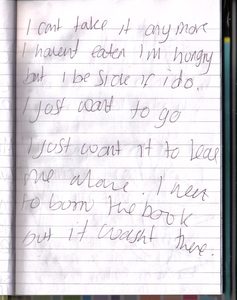 I cant take it any more
I havent eaten I'm hungry
but I be sick if i do.
I just want to go
I just want it to leave
me alone. I went
to born the book
but it wasnt there.